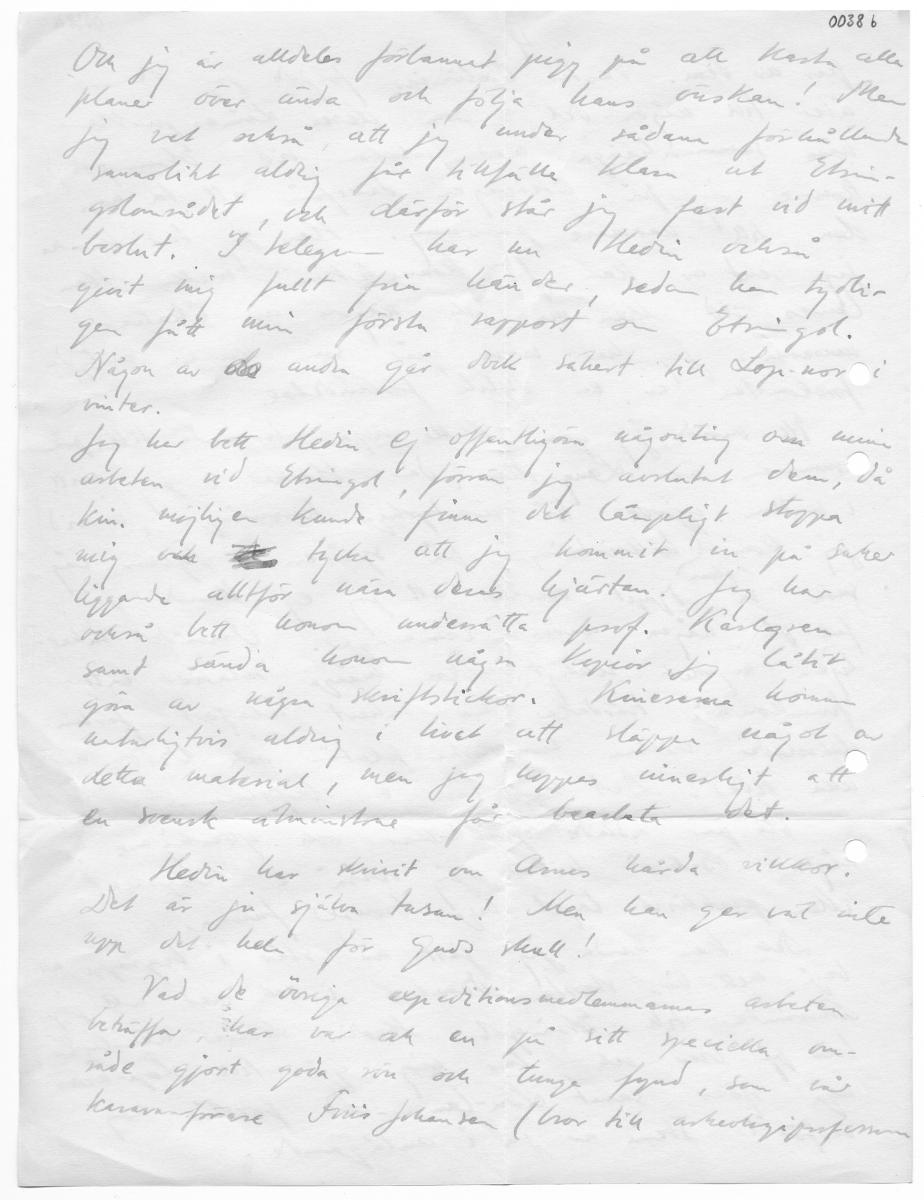 0038 b
Och jag är alldeles förbannat pigg på att kasta alla
planer över ända och följa hans önskan! Men
jag vet också, att jag under sådana förhållanden
sannolikt aldrig får tillfälle klara ut Etsin-
golområdet, och därför står jag fast vid mitt
beslut. I telegram har nu Hedin också
givit mig fullt fria händer, sedan han tydli-
gen fått min första rapport om Etsingol.
Någon av de andra går dock säkert till Lop-nor i
vinter.
Jag har bett Hedin ej offentliggöra någonting om mina
arbeten vid Etsingol, förrän jag avslutat dem, då
kin. möjligen kunde finna det lämpligt stoppa
mig och tycka att jag kommit in på saker
liggande alltför nära deras hjärtan. Jag har
också bett honom underrätta prof. Karlgren
samt sända honom några kopior jag låtit
göra av några skriftstickor. Kineserna komma
naturligtvis aldrig i livet att släppa något av
detta material, men jag hoppas innerligt att
en svensk åtminstone får bearbeta det.
Hedin har skrivit om Arnes hårda villkor.
Det är ju själva tusan! Men han ger väl inte
upp det hela för Guds skull!
Vad de övriga expeditionsmedlemmarnas arbeten
beträffar, har var och en på sitt speciella om-
råde gjort goda rön och tunga fynd, som vår
karavanförare Friis Johansen (bror till arkeologiprofessorn